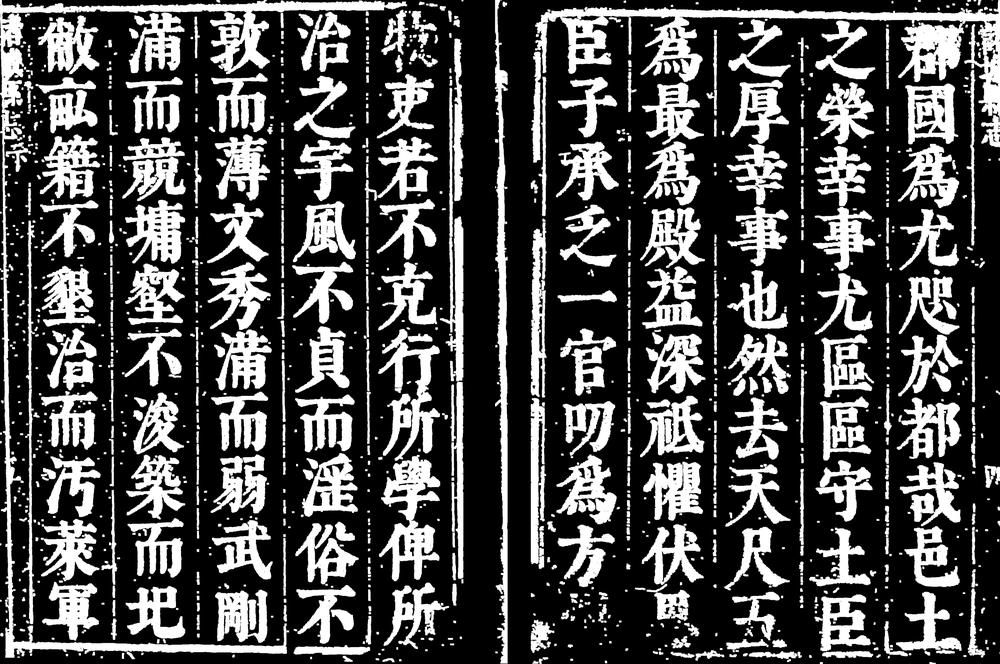 郡國爲尤咫於都哉邑土
之榮幸事尤區區守土臣
之厚幸事也然去天尺五
爲最爲殿益深祗懼伏
臣子承乏一官叨爲方
吏若不克行所學俾所
治之宇風不貞而滛俗不
敦而薄文秀滿而弱武剛
滿而競墉壑不浚築而圯
畝籍不墾治而汚萊軍